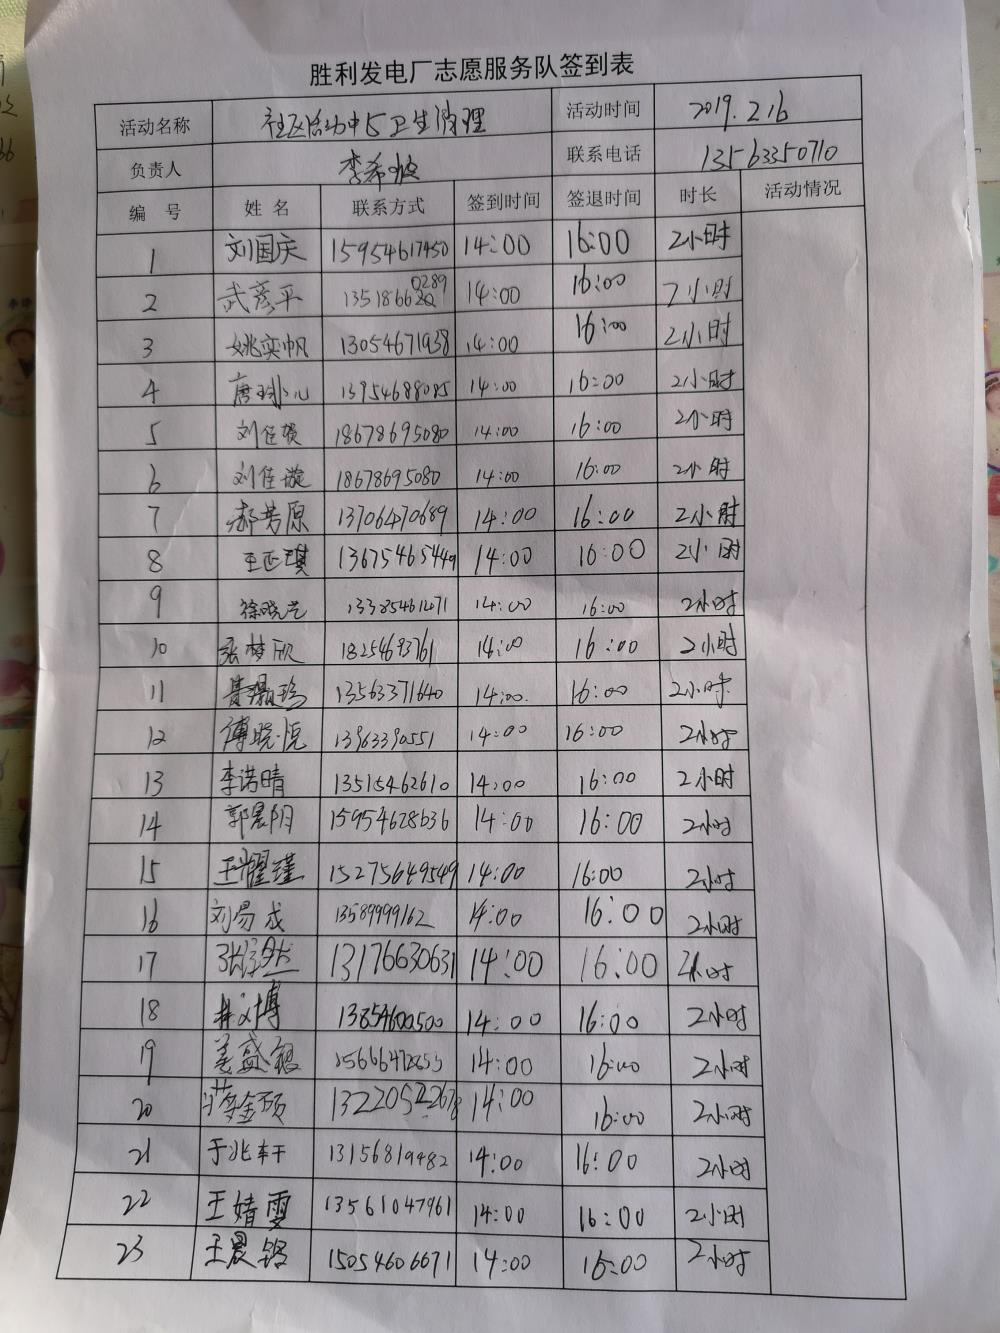 胜利发电厂志愿服务队签到表
活动名称 社区活动中心卫生清理 活动时间 2019.2.16
负责人 李希波 联系电话 13563350710
编 号 姓 名 联系方式 签到时间 签退时间 时长 活动情况
1 刘国庆 15954617450 14:00 16:00 2小时
2 武彦平 13518660289 14:00 16:00 2小时
3 姚奕帆 13054671938 14:00 16:00 2小时
4 唐 13954688085 14:00 16:00 2小时
5 刘佳媛 18678695080 14:00 16:00 2小时
6 刘佳漩 18678695080 14:00 16:00 2小时
7 郝芳原 13706470689 14:00 16:00 2小时
8 王正琪 13675465449 14:00 16:00 2小时
9 徐晓艺 14:00 16:00 2小时
10 张梦欣 18254693761 14:00 16:00 2小时
11 13563371640 14:00 16:00 2小时
12 傅晓悦 13963390551 14:00 16:00 2小时
13 李诺晴 13515462610 14:00 16:00 2小时
14 郭晨阳 15954628636 14:00 16:00 2小时
15 王耀瑾 15275649549 14:00 16:00 2小时
16 刘易成 13589999162 14:00 16:00 2小时
17 13176630631 14:00 16:00 2小时
18 博 13854600500 14:00 16:00 2小时
19 姜盛 14:00 16:00 2小时
20 金硕 13220522678 14:00 16:00 2小时
21 于兆轩 13156819482 14:00 16:00 2小时
22 王婧雯 13561047961 14:00 16:00 2小时
23 王晨铭 15054606671 14:00 16:00 2小时